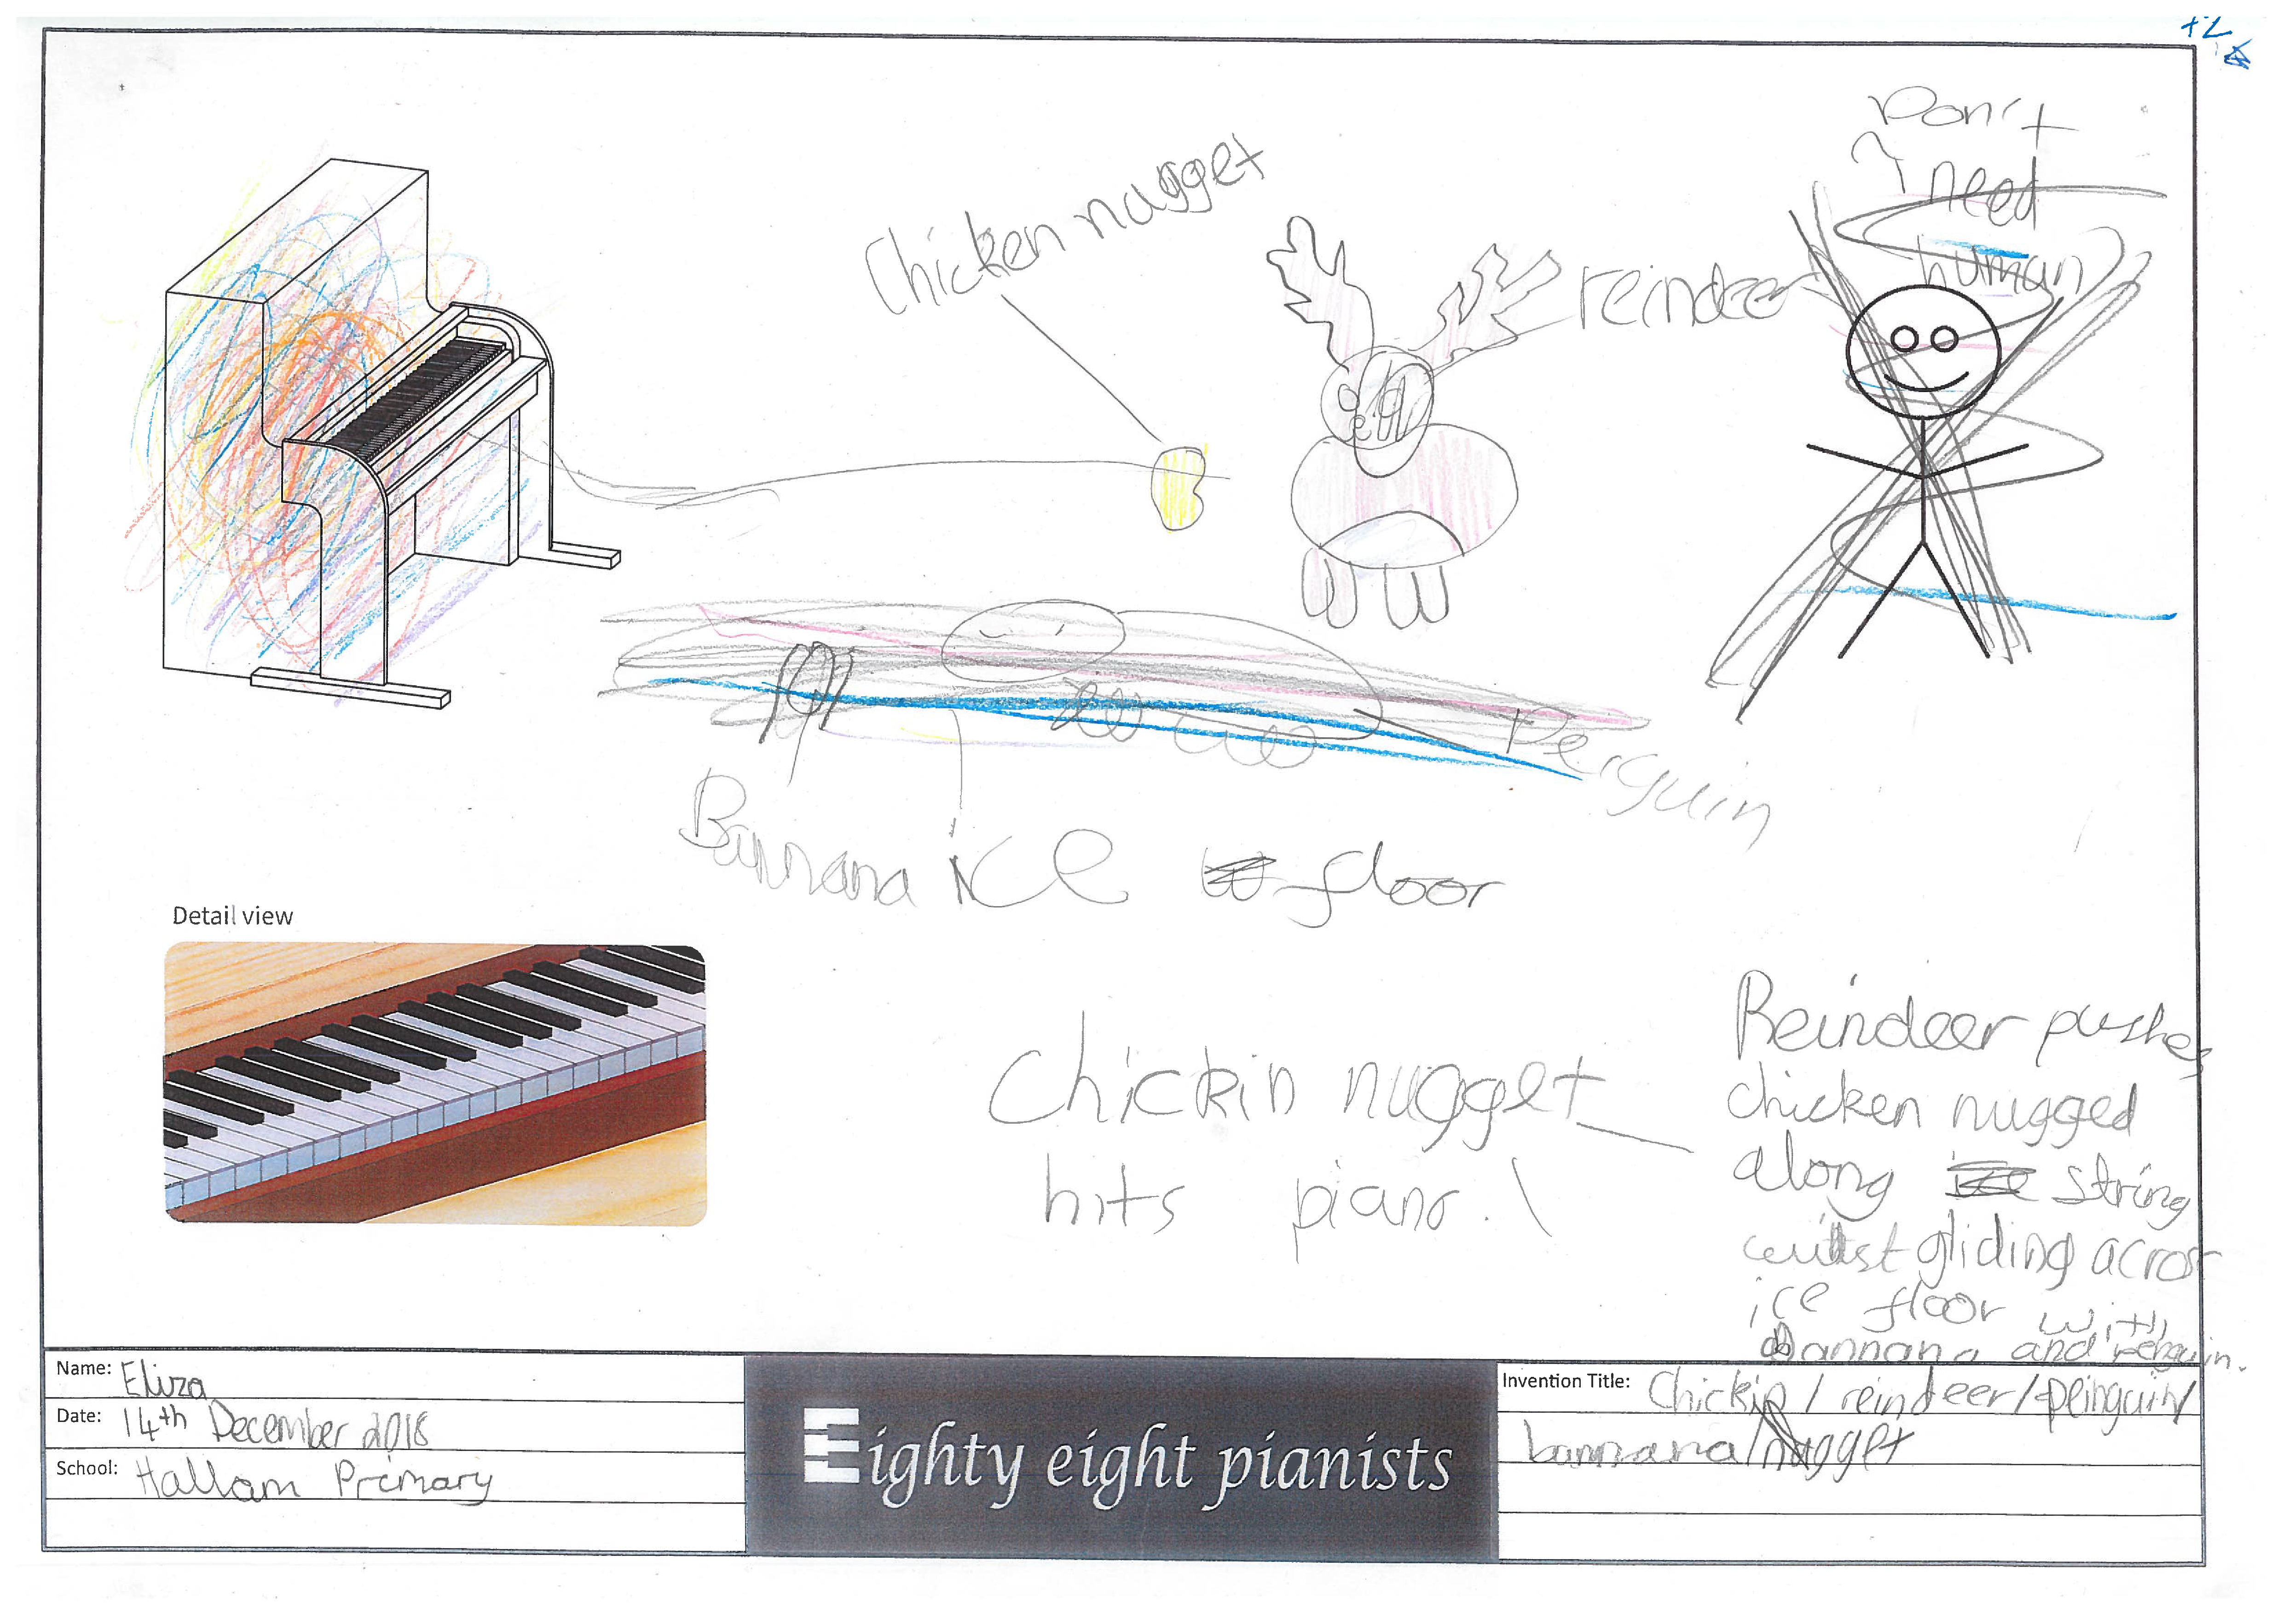 +2
Don't
need
human
Chicken nugget
reindeer
Penguin
Bannana ice floor
Detail view
Chickin nugget
hits piano.
Reindeer pushes
chicken nugged
along ice string
whilst gliding across
ice floor with
Bannana and penguin.
Name: Eliza
Date: 14th December 2018
School: Hallam Primary
Eighty eight pianists
Invention Title: Chickin / reindeer / penguin /
bannana / nugget